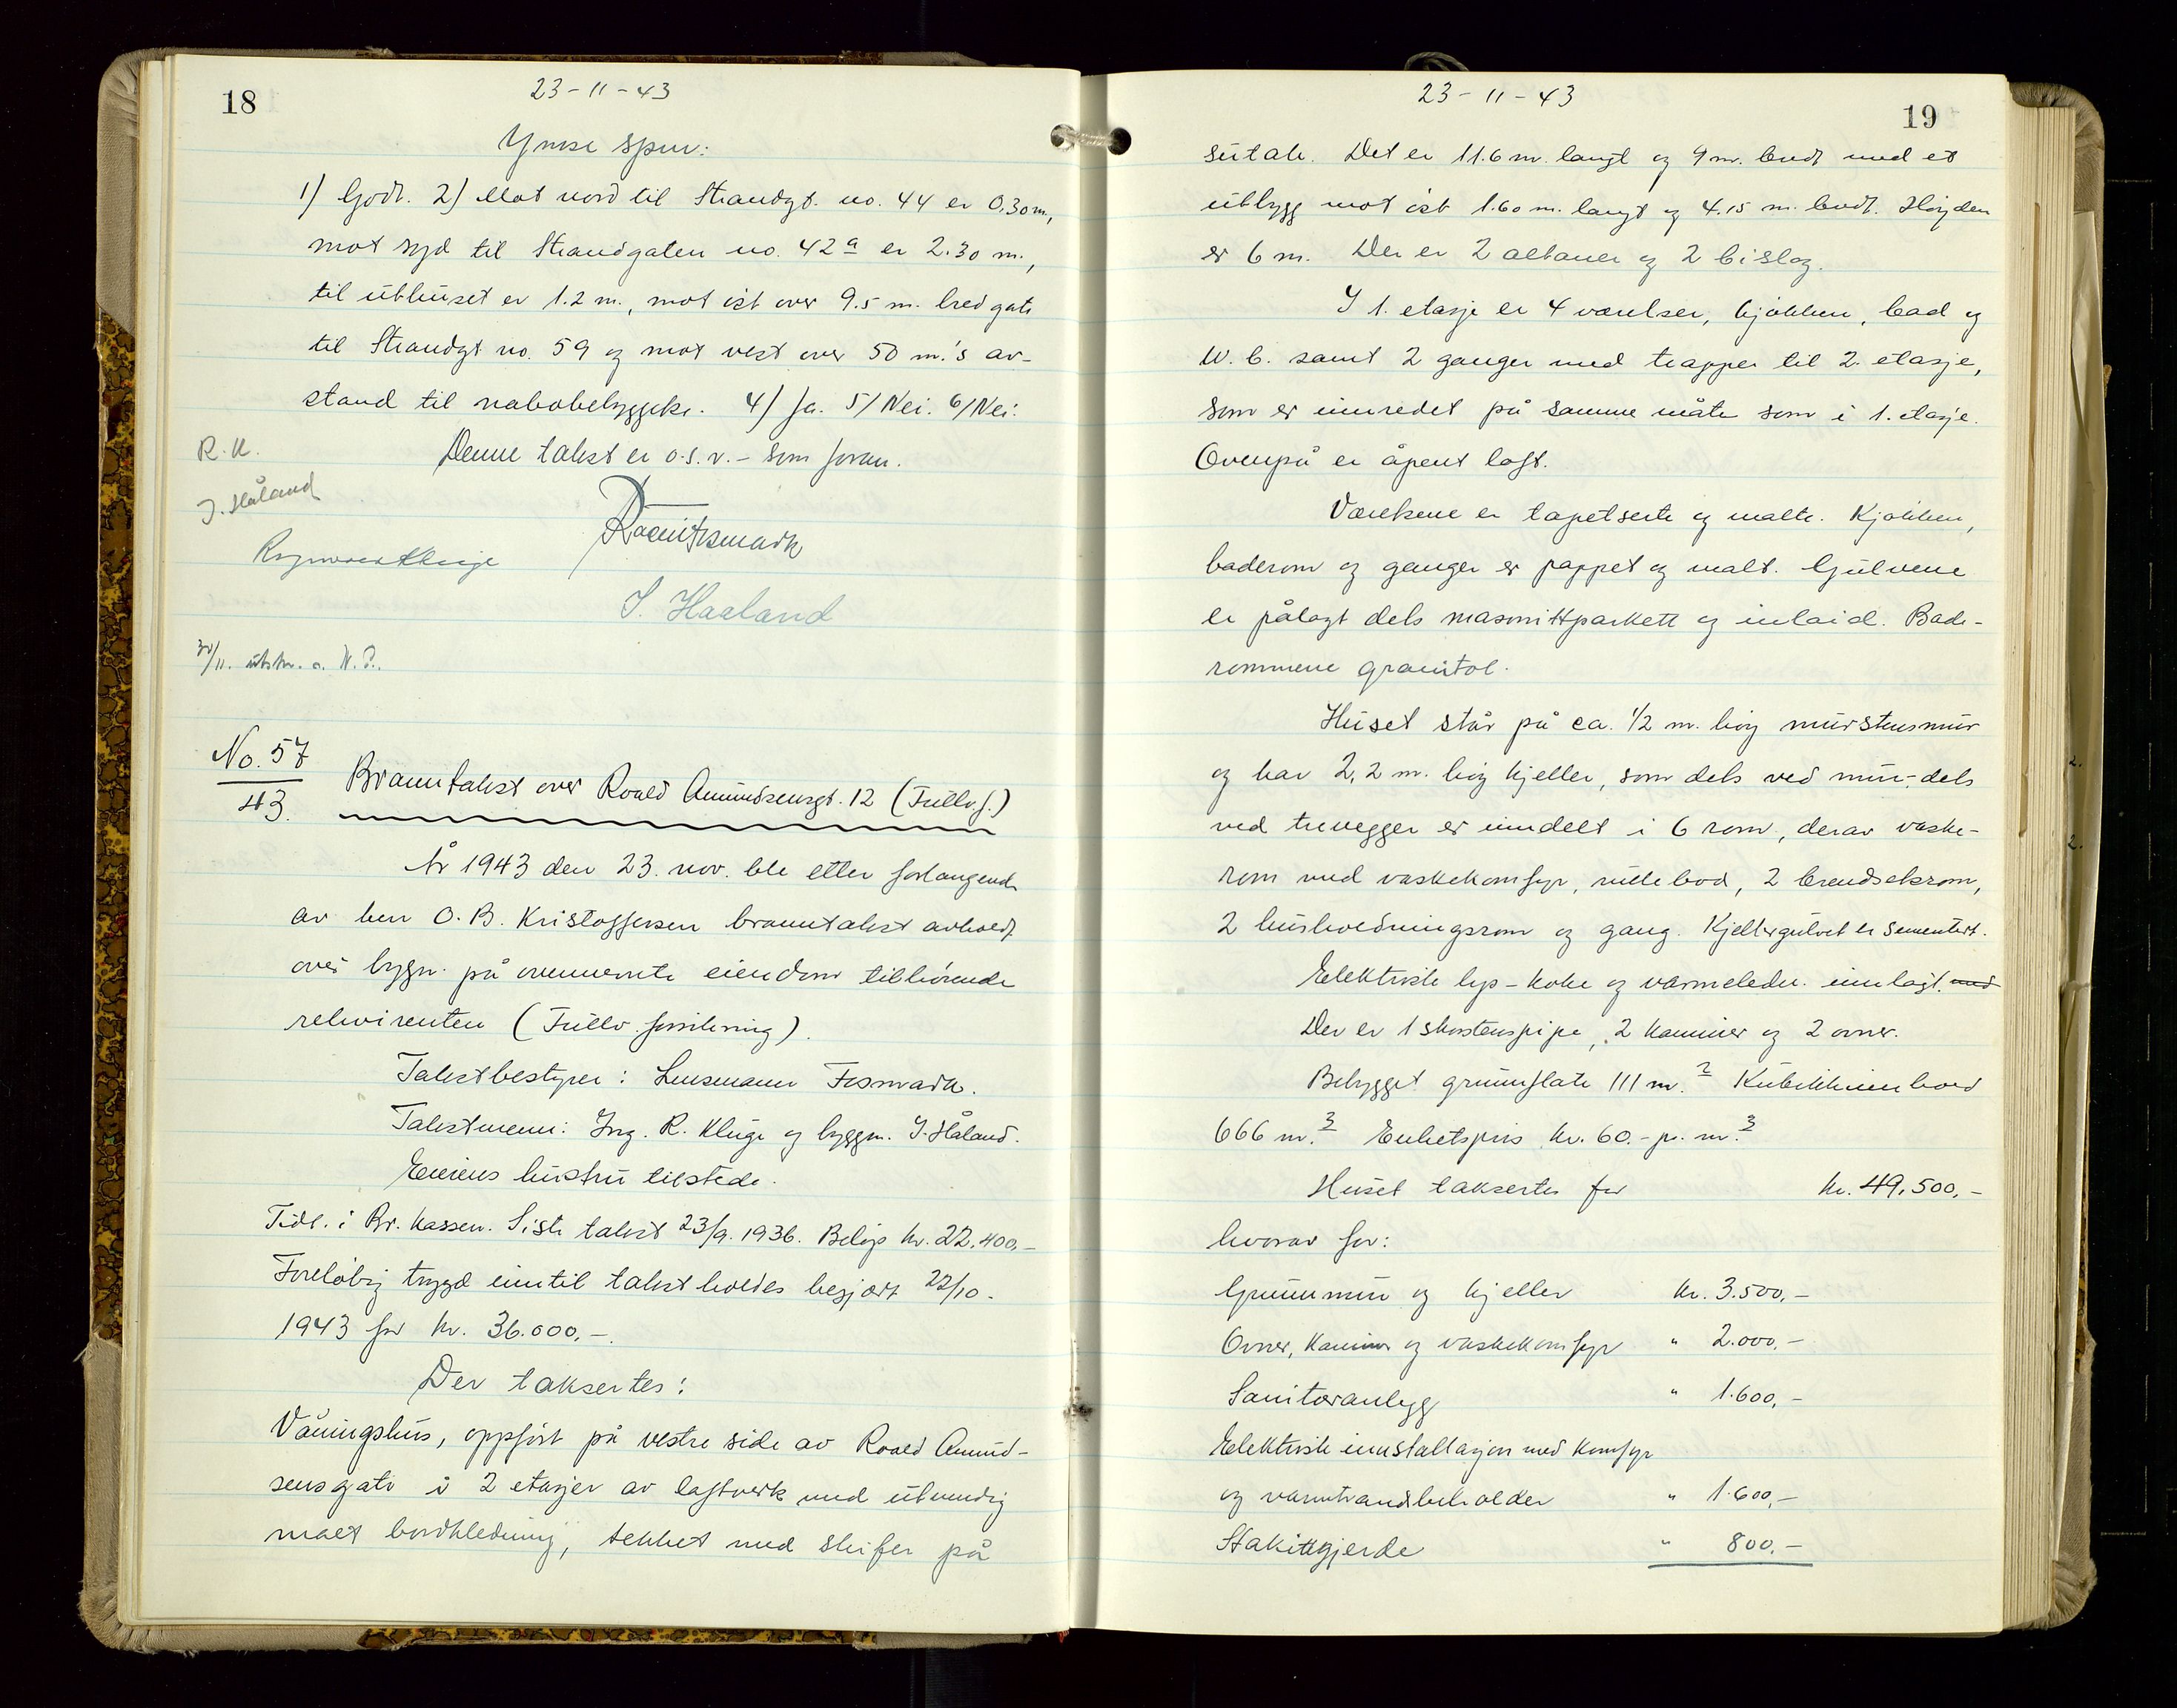 18
23-11-43
Ymse spm:
1) Godt. 2) Mot nord til Strandgt. no. 44 er 0,30 m.,
mot syd til Strandgaten no. 42a er 2.30 m.,
til uthuset er 1.2 m., mot øst over 9.5 m. bred gate
til Strandgt no. 59 og mot vest over 50 m.'s av-
stand til nabobebyggelse. 4) Ja. 5/ Nei. 6/ Nei.
R.K. Denne takst er o.s.v. - som foran.
J. Håland
Fosmark
Ragnvald Kluge
J. Haaland
30/11. utskr. s. N.P.
No. 57
43.
Branntakst over Roald Amundsensgt. 12 (Fullv.f.)
År 1943 den 23. nov. ble etter forlangende
av herr O.B. Kristoffersen branntakst avholdt
over bygn. på ovennevnte eiendom tilhørende
rekvirenten (Fullv. forsikring).
Takstbestyrer: Lensmann Fosmark.
Takstmenn: Ing. R. Kluge og byggm. J. Håland.
Eierens hustru tilstede.
Tidl. i Br. kassen. Siste takst 23/9. 1936. Beløp kr. 22.400,-
Foreløbig trygd inntil takst holdes begjært 22/10.
1943 for kr. 36.000.-.
Der taksertes:
Våningshus, oppført på vestre side av Roald Amund-
sensgate i 2 etasjer av laftverk med utvendig
malt bordkledning, tekket med skifer på
23-11-43
19
sutak. Det er 11.6 m. langt og 9 m. bredt med et
utbygg mot øst 1.60 m. langt og 4.15 m. bredt. Høyden
er 6 m. Der er 2 altaner og 2 bislag.
I 1. etasje er 4 værelser, kjøkken, bad og
W.C. samt 2 ganger med trapper til 2. etasje,
som er innredet på samme måte som i 1. etasje.
Ovenpå er åpent loft.
Værelsene er tapetserte og malte. Kjøkken,
baderom og ganger er pappet og malt. Gulvene
er pålagt dels masonittparkett og inlaid. Bade-
rommene granitol.
Huset står på ca. 1/2 m. høy murstensmur
og har 2,2 m. høy kjeller, som dels ved mur-, dels
ved trevegger er inndelt i 6 rom, derav vaske-
rom med vaskekomfyr, rullebod, 2 brendselsrom,
2 husholdningsrom og gang. Kjellergulvet er sementert.
Elektrisk lys- koke og varmeledn. innlagt. med
Der er 1 skorstenspipe, 2 kaminer og 2 ovner.
Bebygget grunnflate 111 m.2 Kubikkinnhold
666 m.3 Enhetspris kr. 60.- pr. m.3
Huset taksertes for kr. 49.500,-
hvorav for:
Grunnmur og kjeller kr. 3.500,-
Ovner, kaminer og vaskekomfyr " 2.000,-
Sanitæranlegg " 1.600,-
Elektrisk innstallasjon med komfyr
og varmtvandsbeholder " 1.600,-
Stakittgjerde " 800.-